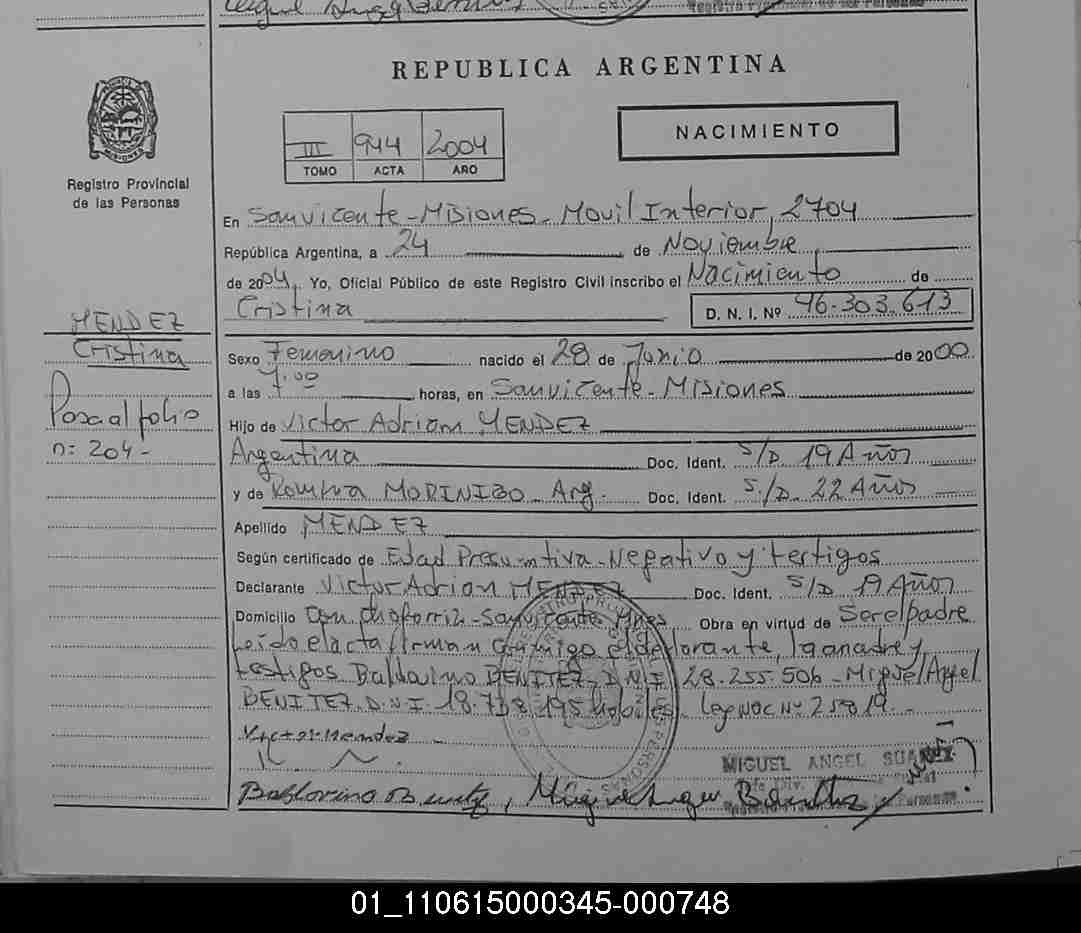 REPUBLICA ARGENTINA
NACIMIENTO
III 944 2004
TOMO ACTA AÑO
Registro Provincial
de las Personas
En San vicente - Misiones - Movil Interior, 2704
República Argentina, a 24 de Noviembre
de 2004. Yo, Oficial Público de este Registro Civil inscribo el Nacimiento de
Cristina D. N. I. Nº 46.303.613
MENDEZ
Cristina
Pasa al folio
n: 204 -
Sexo Femenino nacido el 28 de Junio de 2000
a las 7:00 horas, en San vicente - Misiones
Hijo de Victor Adrian MENDEZ
Argentina Doc. Ident. S/D 19 Años
y de Romina Arg. Doc. Ident. S/D. 22 Años
Apellido MENDEZ
Según certificado de Edad Presuntiva - Negativo y testigos
Declarante Victor Adrian MENDEZ Doc. Ident. S/D 19 Años
Domicilio San vicente Mnes Obra en virtud de Ser el padre
Leido el acta firman conmigo el declarante, la madre y
testigos Baldovino BENITEZ - D.N.I. 28.255.506 - Miguel Angel
BENITEZ D.N.I. 18.738.195 habiles. Ley NAC Nº 25819 -
Victor Mendez
Baldovino Benitez, Miguel Angel Benitez
MIGUEL ANGEL SUAREZ
01_110615000345-000748